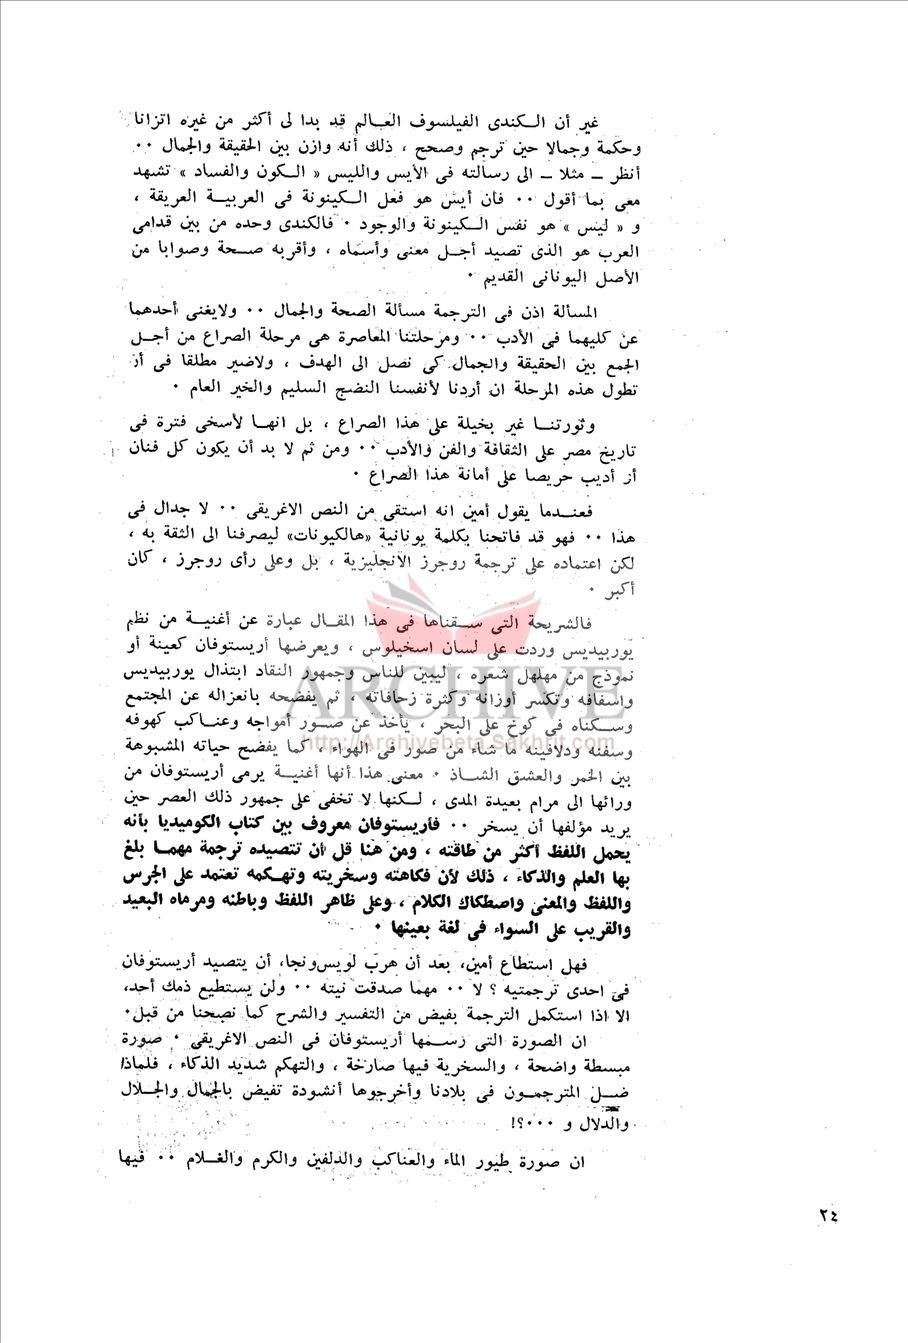 غير أن الكندى الفيلسوف العالم قد بدا لى أكثر من غيره اتزانا
وحكمة وجمالا حين ترجم وصحح ، ذلك أنه وازن بين الحقيقة والجمال ٠٠
أنظر ــ مثلا ــ الى رسالته فى الأيس والليس « الكون والفساد » تشهد
معى بما أقول ٠٠ فان أيس هو فعل الكينونة فى العربية العريقة ،
و « ليس » هو نفس الكينونة والوجود ٠ فالكندى وحده من بين قدامى
العرب هو الذى تصيد أجل معنى وأسماه ، وأقربه صحة وصوابا من
الأصل اليونانى القديم ٠
المسألة اذن فى الترجمة مسألة الصحة والجمال ٠٠ ولايغنى أحدهما
عن كليهما فى الأدب ٠٠ ومرحلتنا المعاصرة هى مرحلة الصراع من أجل
الجمع بين الحقيقة والجمال كى نصل الى الهدف ، ولاضير مطلقا فى أن
تطول هذه المرحلة ان أردنا لأنفسنا النضج السليم والخير العام ٠
وثورتنا غير بخيلة على هذا الصراع ، بل انها لأسخى فترة فى
تاريخ مصر على الثقافة والفن والأدب ٠٠ ومن ثم لا بد أن يكون كل فنان
أو أديب حريصا على أمانة هذا الصراع ٠
فعندما يقول أمين انه استقى من النص الاغريقى ٠٠ لا جدال فى
هذا ٠٠ فهو قد فاتحنا بكلمة يونانية «هالكيونات» ليصرفنا الى الثقة به ،
لكن اعتماده على ترجمة روجرز الانجليزية ، بل وعلى رأى روجرز ، كان
أكبر ٠
فالشريحة التى سقناها فى هذا المقال عبارة عن أغنية من نظم
يوربيديس وردت على لسان اسخيلوس ، ويعرضها أريستوفان كعينة أو
نموذج من مهلهل شعره ، ليبين للناس وجمهور النقاد ابتذال يوربيديس
واسفافه وتكسر أوزانه وكثرة زحافاته ، ثم يفضحه بانعزاله عن المجتمع
وسكناه فى كوخ على البحر ، يأخذ عن صور أمواجه وعناكب كهوفه
وسفنه ودلافينه ما شاء من صور فى الهواء ، كما يفضح حياته المشبوهة
بين الخمر والعشق الشاذ ٠ معنى هذا أنها أغنية يرمى أريستوفان من
ورائها الى مرام بعيدة المدى ، لكنها لا تخفى على جمهور ذلك العصر حين
يريد مؤلفها أن يسخر ٠٠ فأريستوفان معروف بين كتاب الكوميديا بأنه
يحمل اللفظ أكثر من طاقته ، ومن هنا قل أن تتصيده ترجمة مهما بلغ
بها العلم والذكاء ، ذلك لأن فكاهته وسخريته وتهكمه تعتمد على الجرس
واللفظ والمعنى واصطكاك الكلام ، وعلى ظاهر اللفظ وباطنه ومرماه البعيد
والقريب على السواء فى لغة بعينها ٠
ARCHIVE
http://Archivebeta.Sakhrit.com
فهل استطاع أمين، بعد أن هرب لويس ونجا، أن يتصيد أريستوفان
فى احدى ترجمتيه ؟ لا ٠٠ مهما صدقت نيته ٠٠ ولن يستطيع ذمك أحد،
الا اذا استكمل الترجمة بفيض من التفسير والشرح كما نصحنا من قبل٠
ان الصورة التى رسمها أريستوفان فى النص الاغريقى ٠ صورة
مبسطة واضحة ، والسخرية فيها صارخة ، والتهكم شديد الذكاء ، فلماذا
ضل المترجمون فى بلادنا وأخرجوها أنشودة تفيض بالجمال والجلال
والدلال و ٠٠٠؟!
ان صورة طيور الماء والعناكب والدلفين والكرم والغلام ٠٠ فيها
٢٤